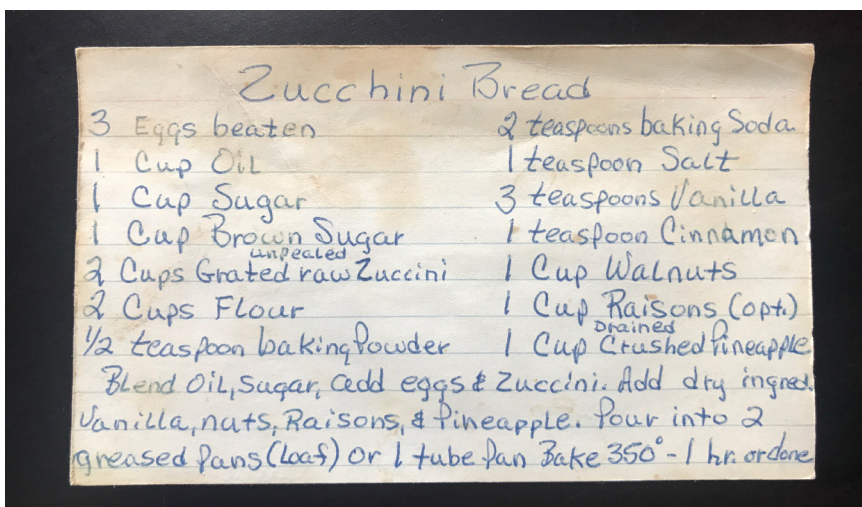 Zucchini Bread
3 Eggs beaten
1 Cup Oil
1 Cup Sugar
1 Cup Brown Sugar
unpealed
2 Cups Grated raw Zuccini
2 Cups Flour
1/2 teaspoon baking Powder
2 teaspoons baking Soda
1 teaspoon Salt
3 teaspoons Vanilla
1 teaspoon Cinnamon
1 Cup Walnuts
1 Cup Raisons (opt.)
Drained
1 Cup Crushed Pineapple
Blend Oil, Sugar, add eggs & Zuccini. Add dry ingred.
Vanilla, nuts, Raisons, & Pineapple. Pour into 2
greased Pans (Loaf) or 1 tube Pan Bake 350° - 1 hr. or done